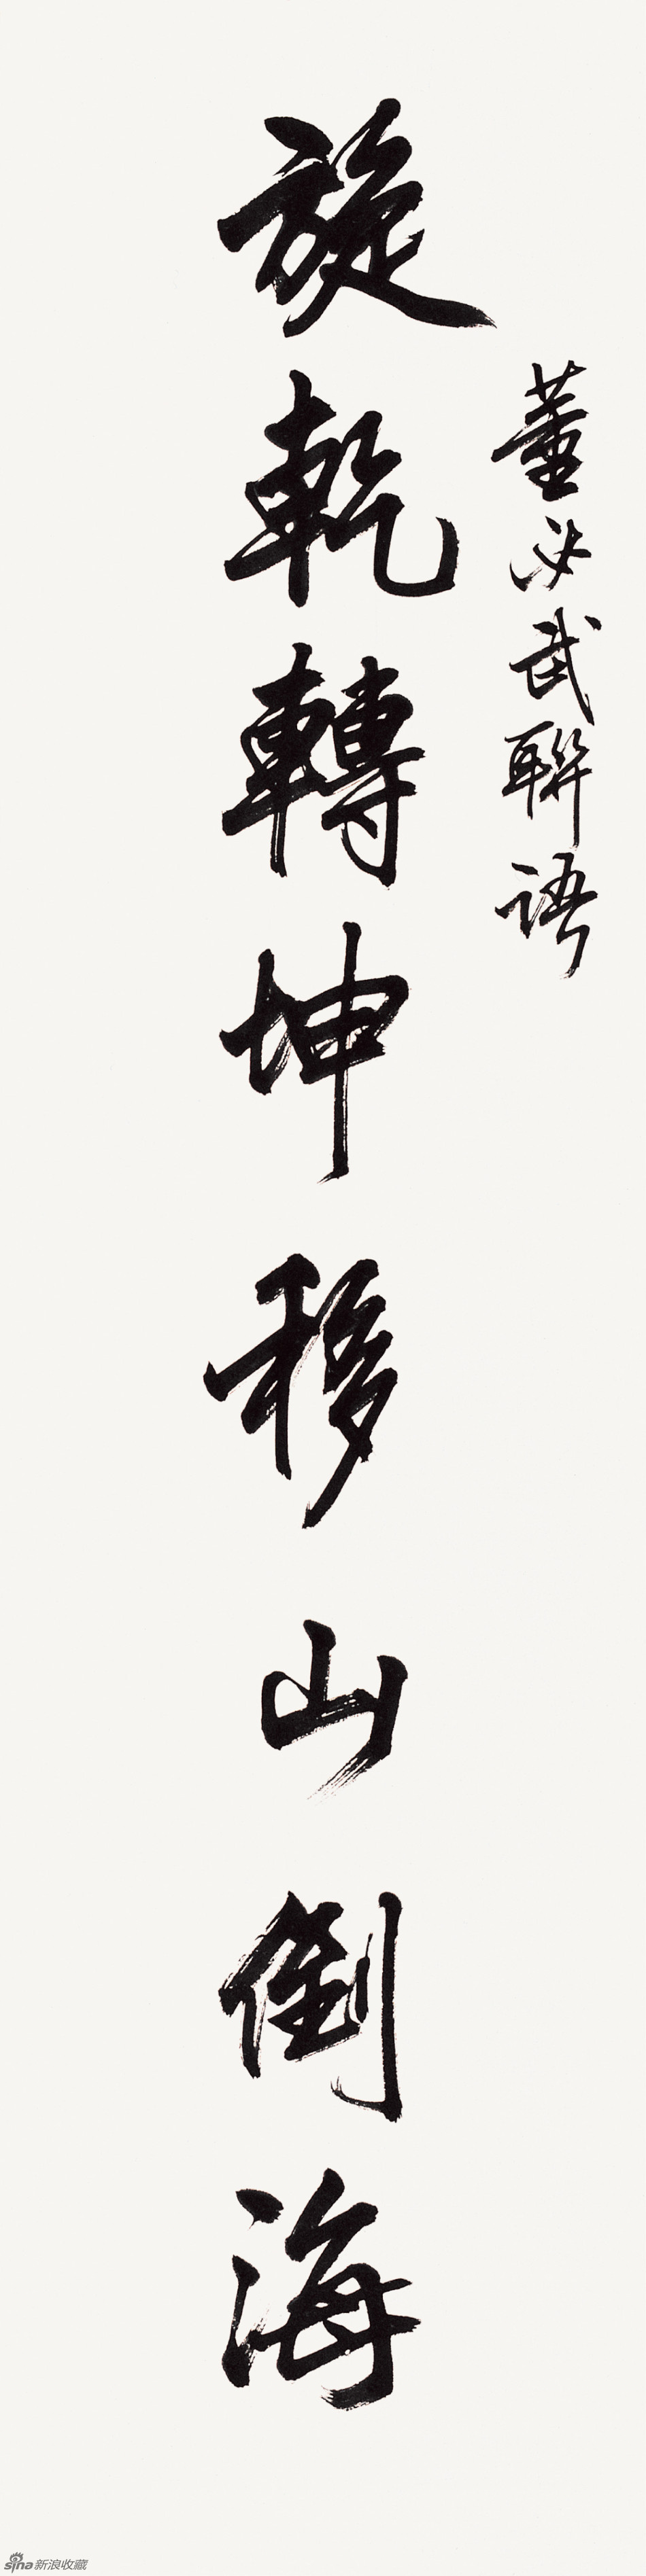 董必武聯語
旋乾轉坤移山倒海
sina新浪收藏